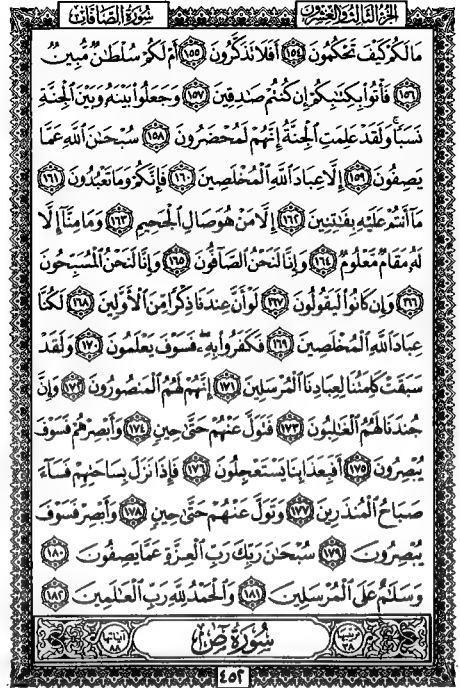 سُورَةُ الصَّافَّاتِ
الجزء الثالث والعشرون
مَا لَكُمْ كَيْفَ تَحْكُمُونَ ١٥٤ أَفَلَا تَذَكَّرُونَ ١٥٥ أَمْ لَكُمْ سُلْطَانٌ مُّبِينٌ
١٥٦ فَأْتُوا بِكِتَابِكُمْ إِن كُنتُمْ صَادِقِينَ ١٥٧ وَجَعَلُوا بَيْنَهُ وَبَيْنَ الْجِنَّةِ
نَسَبًا وَلَقَدْ عَلِمَتِ الْجِنَّةُ إِنَّهُمْ لَمُحْضَرُونَ ١٥٨ سُبْحَانَ اللَّهِ عَمَّا
يَصِفُونَ ١٥٩ إِلَّا عِبَادَ اللَّهِ الْمُخْلَصِينَ ١٦٠ فَإِنَّكُمْ وَمَا تَعْبُدُونَ ١٦١
مَا أَنتُمْ عَلَيْهِ بِفَاتِنِينَ ١٦٢ إِلَّا مَنْ هُوَ صَالِ الْجَحِيمِ ١٦٣ وَمَا مِنَّا إِلَّا
لَهُ مَقَامٌ مَّعْلُومٌ ١٦٤ وَإِنَّا لَنَحْنُ الصَّافُّونَ ١٦٥ وَإِنَّا لَنَحْنُ الْمُسَبِّحُونَ
١٦٦ وَإِن كَانُوا لَيَقُولُونَ ١٦٧ لَوْ أَنَّ عِندَنَا ذِكْرًا مِّنَ الْأَوَّلِينَ ١٦٨ لَكُنَّا
عِبَادَ اللَّهِ الْمُخْلَصِينَ ١٦٩ فَكَفَرُوا بِهِ فَسَوْفَ يَعْلَمُونَ ١٧٠ وَلَقَدْ
سَبَقَتْ كَلِمَتُنَا لِعِبَادِنَا الْمُرْسَلِينَ ١٧١ إِنَّهُمْ لَهُمُ الْمَنصُورُونَ ١٧٢ وَإِنَّ
جُندَنَا لَهُمُ الْغَالِبُونَ ١٧٣ فَتَوَلَّ عَنْهُمْ حَتَّىٰ حِينٍ ١٧٤ وَأَبْصِرْهُمْ فَسَوْفَ
يُبْصِرُونَ ١٧٥ أَفَبِعَذَابِنَا يَسْتَعْجِلُونَ ١٧٦ فَإِذَا نَزَلَ بِسَاحَتِهِمْ فَسَاءَ
صَبَاحُ الْمُنذَرِينَ ١٧٧ وَتَوَلَّ عَنْهُمْ حَتَّىٰ حِينٍ ١٧٨ وَأَبْصِرْ فَسَوْفَ
يُبْصِرُونَ ١٧٩ سُبْحَانَ رَبِّكَ رَبِّ الْعِزَّةِ عَمَّا يَصِفُونَ ١٨٠
وَسَلَامٌ عَلَى الْمُرْسَلِينَ ١٨١ وَالْحَمْدُ لِلَّهِ رَبِّ الْعَالَمِينَ ١٨٢
ترتيبها ٣٨
سُورَةُ صٓ
آياتها ٨٨
٤٥٢